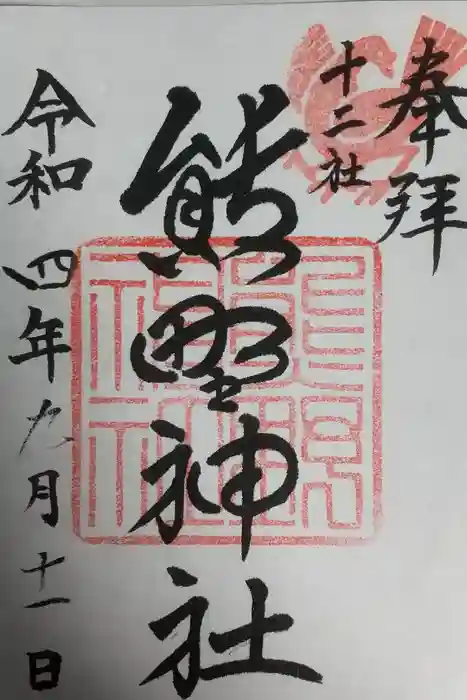 奉拝
十二社
熊野神社
令和四年九月十一日
熊野神社